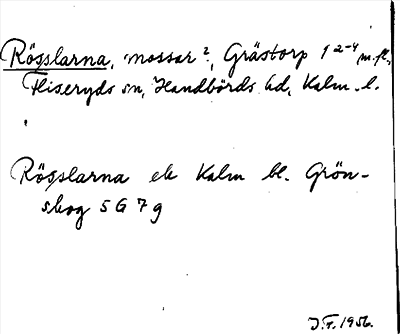 Rösslarna, mossar?, Grästorp 1²⁻⁴ m.fl.,
Fliseryds sn, Handbörds hd, Kalm. l.
Rösslarna ek Kalm bl. Grön-
skog 5 G 7 g
J.F. 1956.